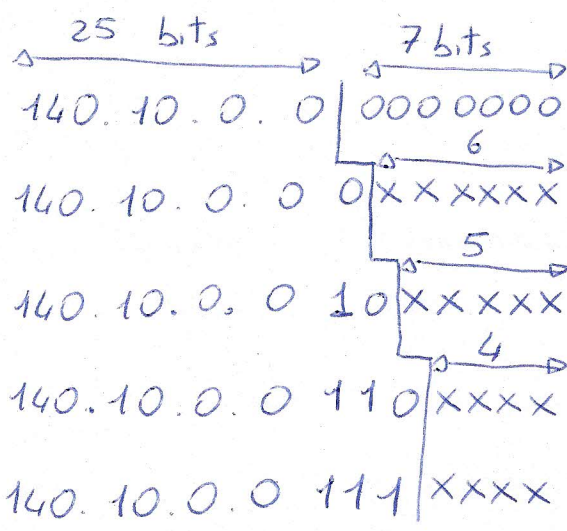 25 bits 7 bits
140.10.0.0 0000000
6
140.10.0.0 0xxxxxx
5
140.10.0.0 10xxxxx
4
140.10.0.0 110xxxx
140.10.0.0 111xxxx